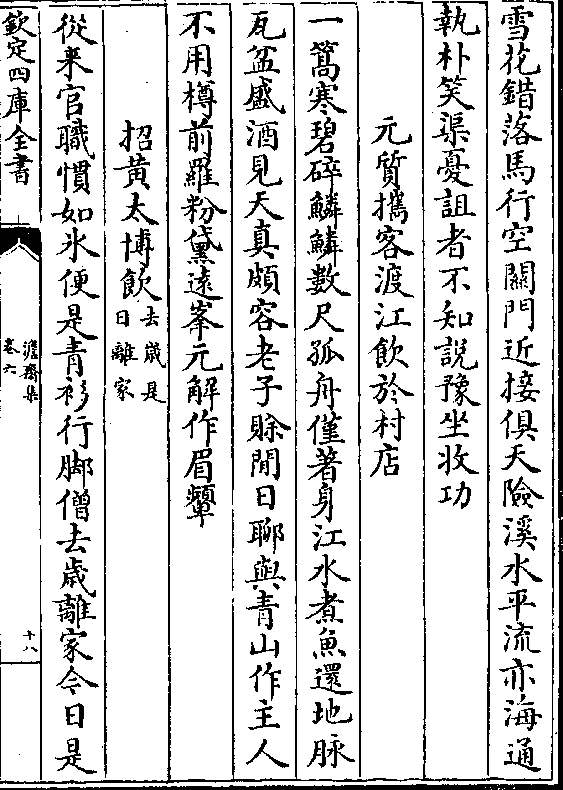 雪花錯落馬行空關門近接俱天險溪水平流亦海通
執朴笑渠憂詛者不知説豫坐收功
元質攜客渡江飲於村店
一篙寒碧碎鱗鱗數尺孤舟僅著身江水煮魚還地脉
瓦盆盛酒見天真頗容老子賖閒日聊與青山作主人
不用樽前羅粉黛逺峯元解作眉顰
招黄太博飲去歳是
日離家
從来官職慣如氷便是青衫行脚僧去歳離家今日是
欽定四庫全書
澹齋集
卷六
十八